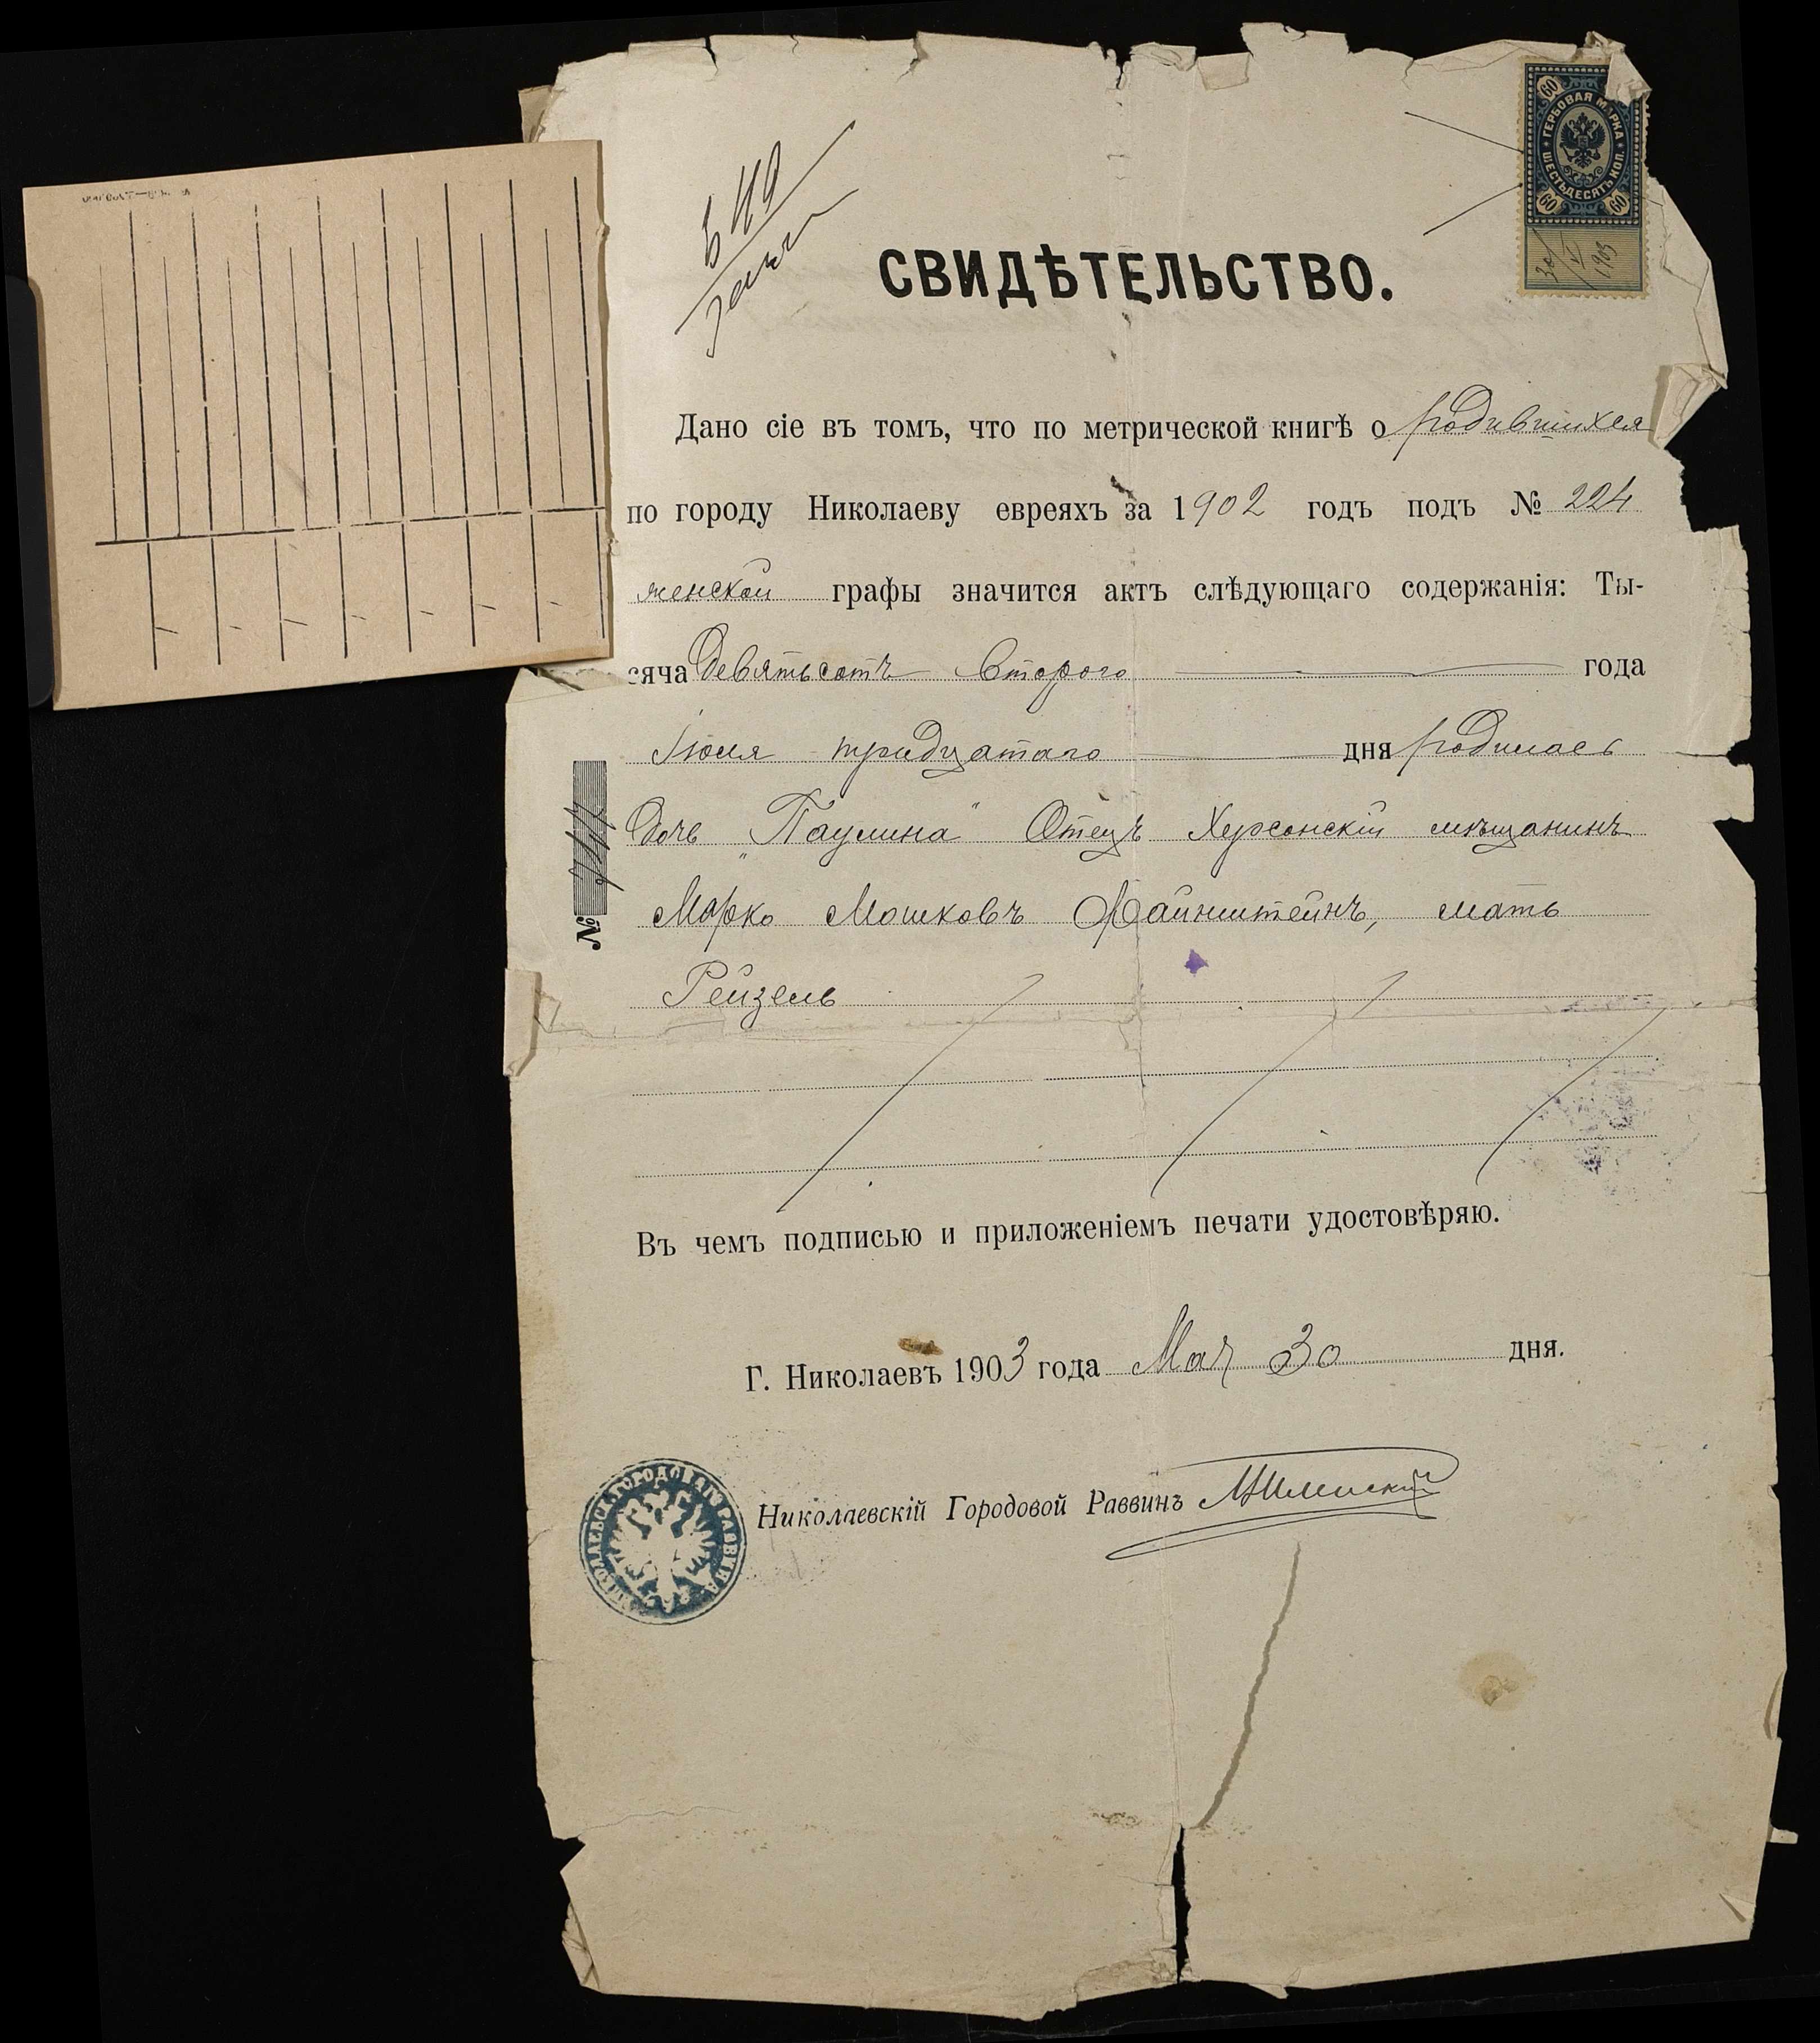 60
ГЕРБОВАЯ МАРКА
ШЕСТЬДЕСЯТЬ КОП.
60 60
30/V 1903
СВИДѢТЕЛЬСТВО.
Дано сіе въ томъ, что по метрической книгѣ о родившихся
по городу Николаеву евреяхъ за 1902 годъ подъ № 224
женской графы значится актъ слѣдующаго содержанія: Ты-
сяча девятьсотъ второго года
Іюля тридцатаго дня родилась
дочь "Паулина" Отецъ Херсонскій мѣщанинъ
Марко Мошковъ Файнштейнъ, мать
Рейзель
№
Въ чемъ подписью и приложеніемъ печати удостовѣряю.
Г. Николаевъ 1903 года Мая 30 дня.
Николаевскій Городовой Раввинъ